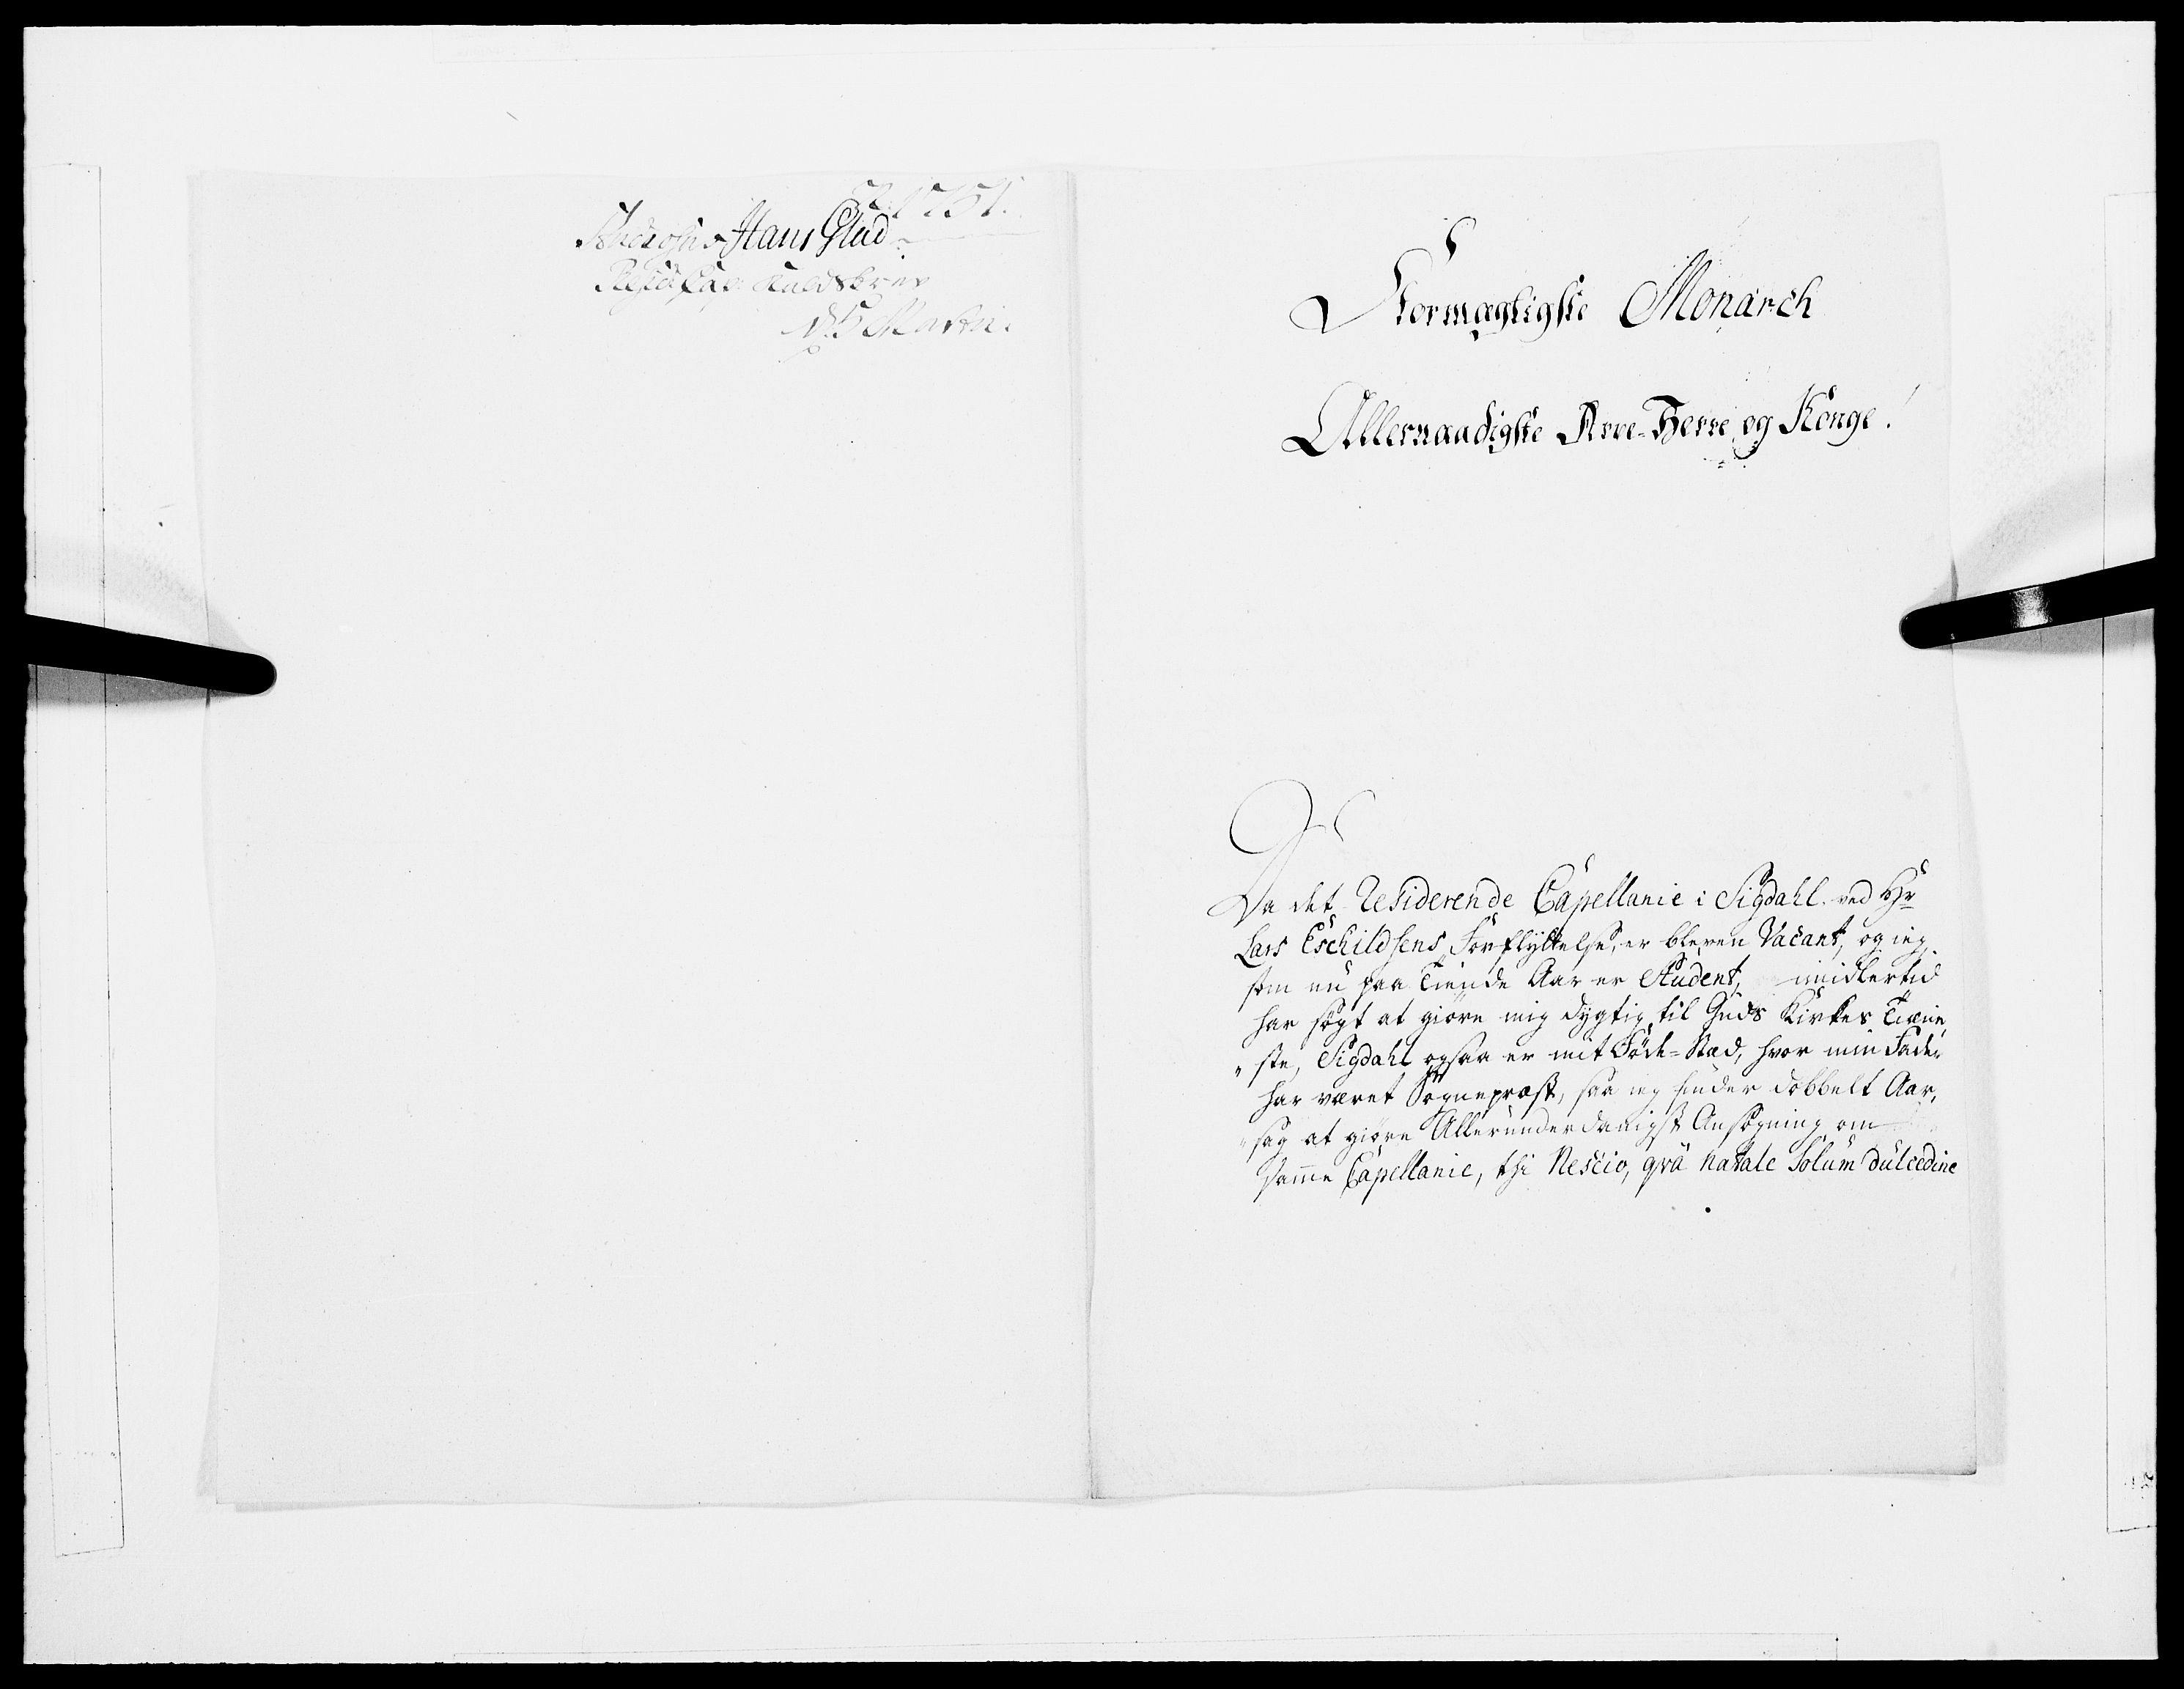 1751.
Hans Glad
Resid Cap: Kaldsbrev
Stormægtigste Monarch
Allernaadigste Arve-Herre og Konge!
Da det Residerende Capellanie i Sigdahl ved Hr
Lars Eschildsens Forflyttelse, er bleven Vacant, og ieg
som nu paa Tiende Aar er Student, imidlertid
har søgt at giøre mig dygtig til Guds Kirkes Tiene
"ste, Sigdahl ogsaa er mit Föde-Stæd, hvor min Fader
har været Sognepræst, saa ieg finder dobbelt Aar,
"sag at giøre Allerunderdanigst Ansøgning om
samme Capellanie, thi Nescio, qvâ natale Solum dulcedine